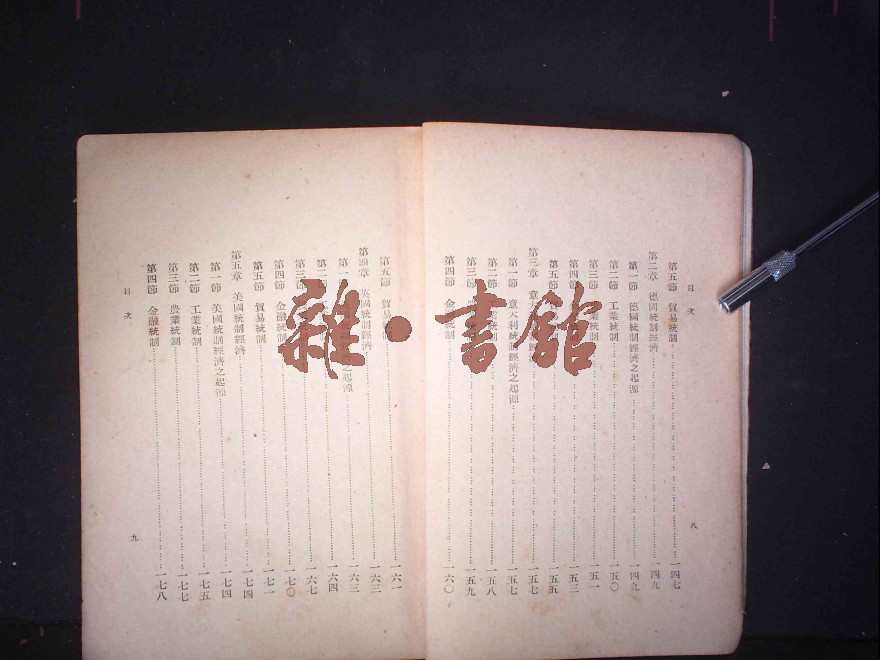 目次
八
第五節 貿易統制 一四七
第二章 德國統制經濟 一四九
第一節 德國統制經濟之起源 一四九
第二節 工業統制 一五〇
第三節 農業統制 一五一
第四節 統制 一五三
第五節 統制 一五五
第三章 意大利統制經濟 一五七
第一節 意大利統制經濟之起源 一五七
第二節 業統制 一五八
第三節 統制 一五九
第四節 金融統制 一六〇
第五節 貿易統制 一六一
第四章 英國統制經濟 一六三
第一節 統制經濟之起源 一六三
第二 一六四
第三節 一六七
第四節 金融統制 一七〇
第五節 貿易統制 一七一
第五章 美國統制經濟 一七四
第一節 美國統制經濟之起源 一七四
第二節 工業統制 一七五
第三節 農業統制 一七七
第四節 金融統制 一七八
目次
九
雜·書館